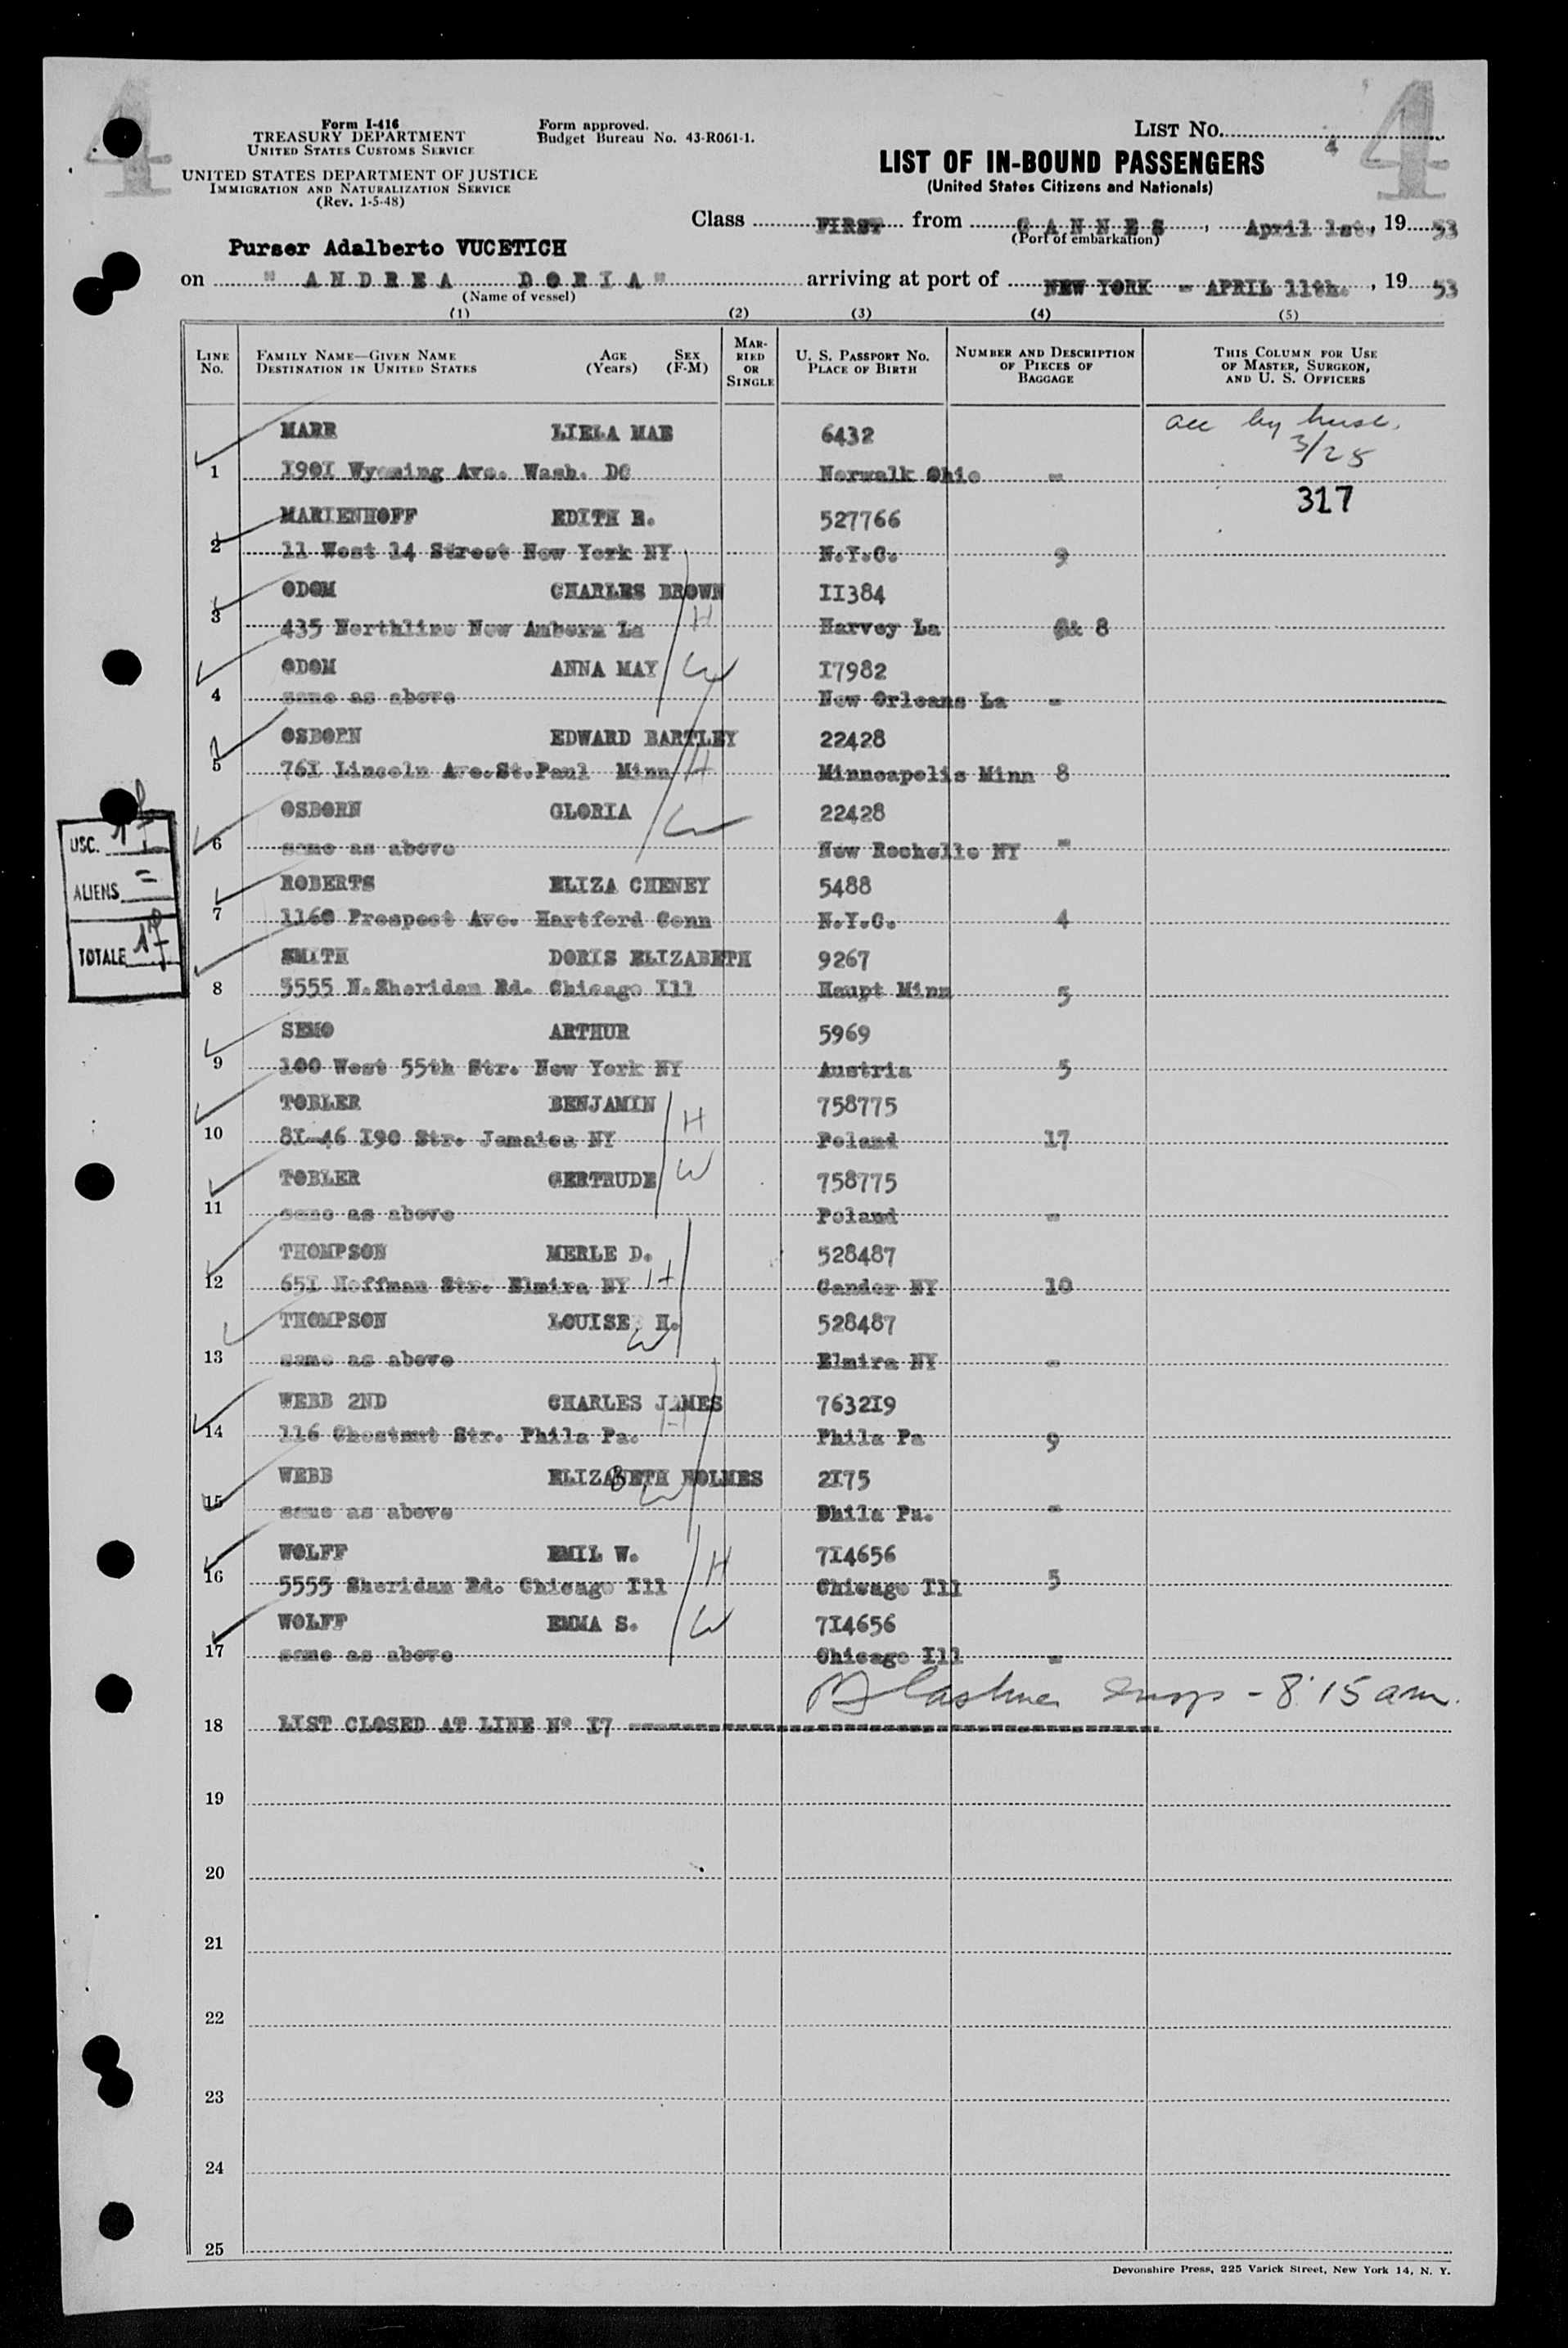 4
4
Form I-416
TREASURY DEPARTMENT
UNITED STATES CUSTOMS SERVICE
UNITED STATES DEPARTMENT OF JUSTICE
IMMIGRATION AND NATURALIZATION SERVICE
(Rev. 1-5-48)
Form approved.
Budget Bureau No. 43-R061-1.
LIST NO. 4
LIST OF IN-BOUND PASSENGERS
(United States Citizens and Nationals)
Class FIRST from CANNES, April 1st., 1953
(Port of embarkation)
Purser Adalberto VUCETICH
on "ANDREA DORIA" arriving at port of NEW YORK - APRIL 11th., 1953
(Name of vessel)
(1) (2) (3) (4) (5)
LINE No. FAMILY NAME—GIVEN NAME DESTINATION IN UNITED STATES AGE (Years) SEX (F-M) MARRIED OR SINGLE U. S. PASSPORT NO. PLACE OF BIRTH NUMBER AND DESCRIPTION OF PIECES OF BAGGAGE THIS COLUMN FOR USE OF MASTER, SURGEON, AND U. S. OFFICERS
MARR LIELA MAE 6432 by 3/28
1 1901 Wyoming Ave. Wash. DC Norwalk Ohio -
317
MARIENHOFF EDITH R. 527766
2 11 West 14 Street New York NY N.Y.C. 9
ODOM CHARLES BROWN II384
3 435 Northline New La H Harvey La & 8
ODOM ANNA MAY W I7982
4 same as above New Orleans La -
OSBORN EDWARD BARTLEY 22428
5 76I Lincoln Ave.St.Paul Minn H Minneapolis Minn 8
OSBORN GLORIA W 22428
6 same as above New Rochelle NY -
ROBERTS ELIZA CHENEY 5488
7 1160 Prospect Ave. Hartford Conn N.Y.C. 4
SMITH DORIS ELIZABETH 9267
8 5555 N.Sheridan Rd. Chicago Ill Haupt Minn 5
SEMO ARTHUR 5969
9 100 West 55th Str. New York NY Austria 5
TOBLER BENJAMIN H 758775
10 8I-46 I90 Str. Jamaica NY Poland 17
TOBLER GERTRUDE W 758775
11 same as above Poland -
THOMPSON MERLE D. 528487
12 65I Hoffman Str. Elmira NY H Candor NY 10
THOMPSON LOUISE H. 528487
13 same as above W Elmira NY -
WEBB 2ND CHARLES JAMES 7632I9
14 116 Chestnut Str. Phila Pa. H Phila Pa 9
WEBB ELIZABETH HOLMES 2I75
15 same as above W Phila Pa. -
WOLFF EMIL W. 7I4656
16 5555 Sheridan Rd. Chicago Ill H Chicago Ill 5
WOLFF EMMA S. W 7I4656
17 same as above Chicago Ill -
- 8:15 am.
18 LIST CLOSED AT LINE Nº I7
19
20
21
22
23
24
25
USC. 17
ALIENS =
TOTALE 17
Devonshire Press, 225 Varick Street, New York 14, N. Y.